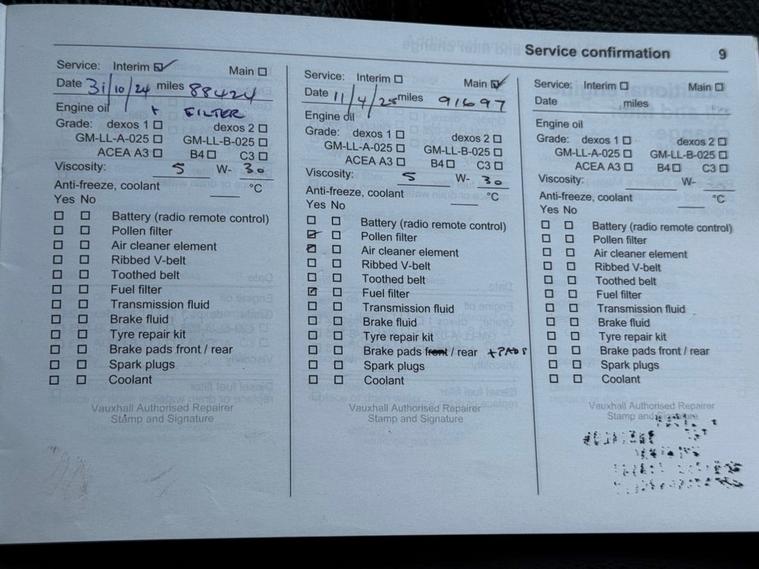 Service confirmation 9
Service: Interim ☑ Main ☐
Date 31/10/24 miles 88424
Engine oil + FILTER
Grade: dexos 1 ☐ dexos 2 ☐
GM-LL-A-025 ☐ GM-LL-B-025 ☐
ACEA A3 ☐ B4 ☐ C3 ☐
Viscosity: 5 W- 30
Anti-freeze, coolant °C
Yes No
☐ ☐ Battery (radio remote control)
☐ ☐ Pollen filter
☐ ☐ Air cleaner element
☐ ☐ Ribbed V-belt
☐ ☐ Toothed belt
☐ ☐ Fuel filter
☐ ☐ Transmission fluid
☐ ☐ Brake fluid
☐ ☐ Tyre repair kit
☐ ☐ Brake pads front / rear
☐ ☐ Spark plugs
☐ ☐ Coolant
Vauxhall Authorised Repairer
Stamp and Signature
Service: Interim ☐ Main ☑
Date 11/4/25 miles 91697
Engine oil
Grade: dexos 1 ☐ dexos 2 ☐
GM-LL-A-025 ☐ GM-LL-B-025 ☐
ACEA A3 ☐ B4 ☐ C3 ☐
Viscosity: 5 W- 30
Anti-freeze, coolant °C
Yes No
☐ ☐ Battery (radio remote control)
☑ ☐ Pollen filter
☑ ☐ Air cleaner element
☐ ☐ Ribbed V-belt
☐ ☐ Toothed belt
☑ ☐ Fuel filter
☐ ☐ Transmission fluid
☐ ☐ Brake fluid
☐ ☐ Tyre repair kit
☐ ☐ Brake pads front / rear + PADS
☐ ☐ Spark plugs
☐ ☐ Coolant
Vauxhall Authorised Repairer
Stamp and Signature
Service: Interim ☐ Main ☐
Date miles
Engine oil
Grade: dexos 1 ☐ dexos 2 ☐
GM-LL-A-025 ☐ GM-LL-B-025 ☐
ACEA A3 ☐ B4 ☐ C3 ☐
Viscosity: W-
Anti-freeze, coolant °C
Yes No
☐ ☐ Battery (radio remote control)
☐ ☐ Pollen filter
☐ ☐ Air cleaner element
☐ ☐ Ribbed V-belt
☐ ☐ Toothed belt
☐ ☐ Fuel filter
☐ ☐ Transmission fluid
☐ ☐ Brake fluid
☐ ☐ Tyre repair kit
☐ ☐ Brake pads front / rear
☐ ☐ Spark plugs
☐ ☐ Coolant
Vauxhall Authorised Repairer
Stamp and Signature